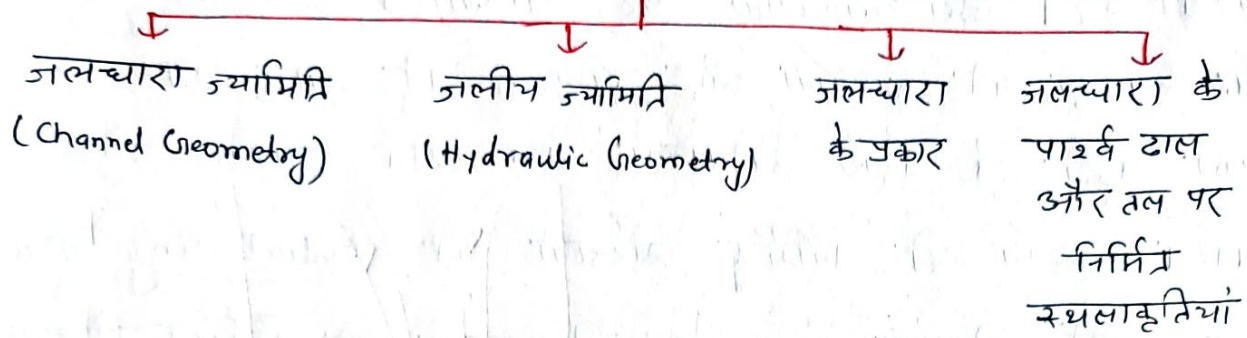 जलधारा ज्यामिति
(Channel Geometry)
जलीय ज्यामिति
(Hydraulic Geometry)
जलधारा
के प्रकार
जलधारा के
पार्श्व ढाल
और तल पर
निर्मित
स्थलाकृतियां